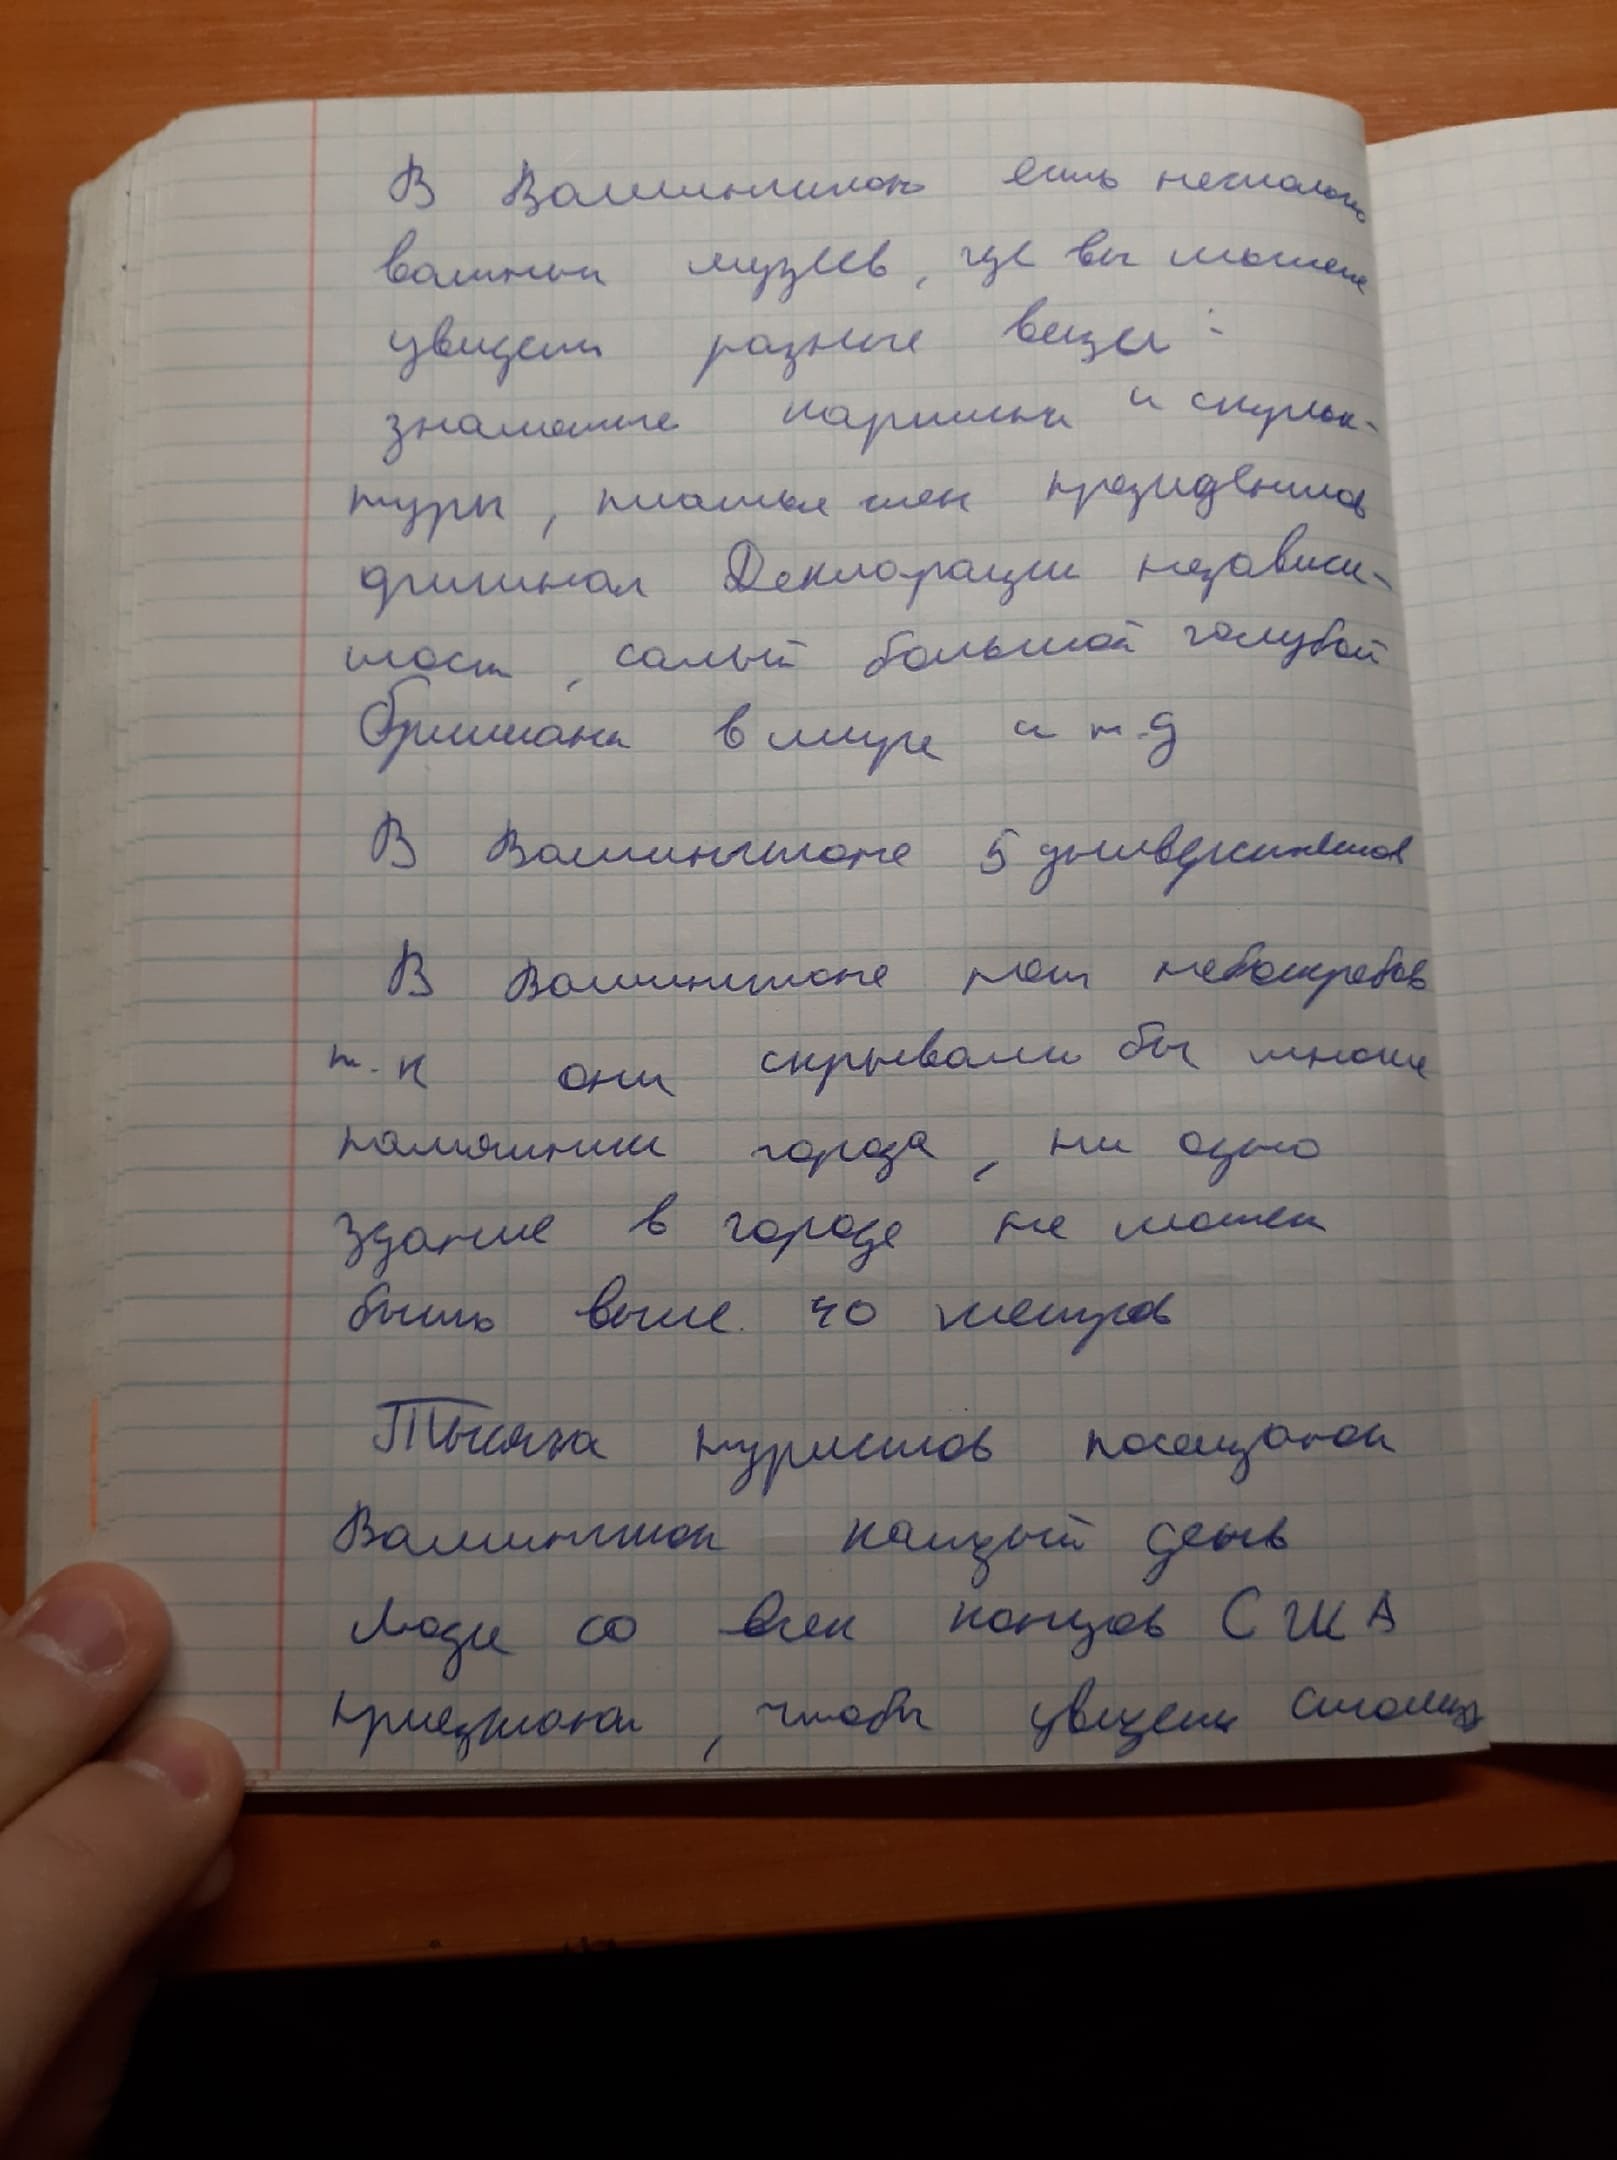 В Вашингтон есть несколько
важных музеев, где вы можете
увидеть разные вещи:
знаменитые картины и скульп-
туры, платья жен президентов
оригинал Декларации независи-
мости, самый большой голубой
бриллиант в мире и т.д
В Вашингтоне 5 университетов
В Вашингтоне нет небоскребов
т.к они скрывали бы многие
памятники города, ни одно
здание в городе не может
быть выше 40 метров
Тысяча туристов посещают
Вашингтон каждый день
Люди со всех концов США
приезжают, чтобы увидеть столицу